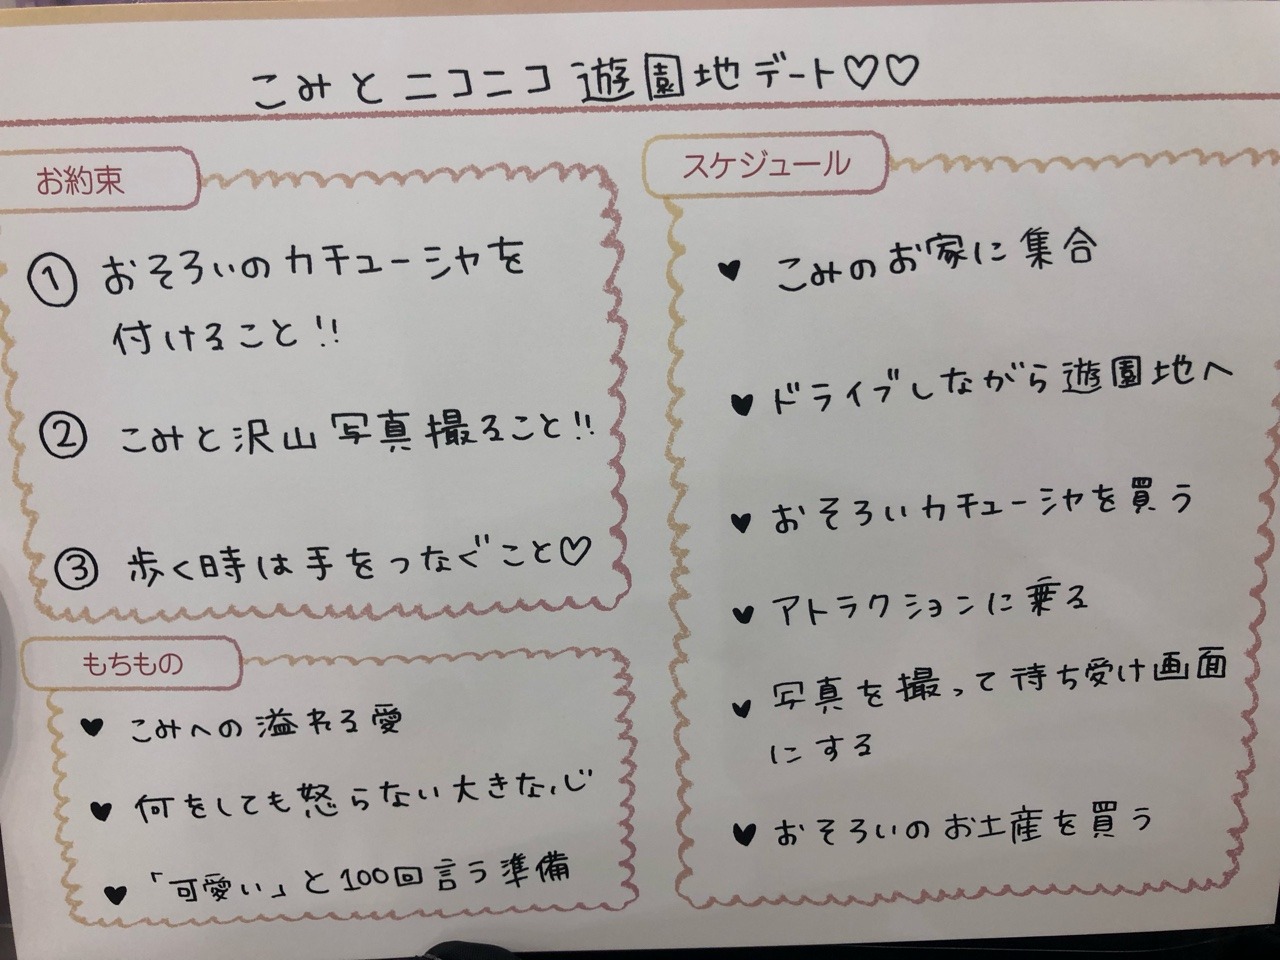 こみとニコニコ遊園地デート♡♡
お約束
① おそろいのカチューシャを
付けること!!
② こみと沢山写真撮ること!!
③ 歩く時は手をつなぐこと♡
もちもの
♥ こみへの溢れる愛
♥ 何をしても怒らない大きな心
♥ 「可愛い」と100回言う準備
スケジュール
♥ こみのお家に集合
♥ ドライブしながら遊園地へ
♥ おそろいカチューシャを買う
♥ アトラクションに乗る
♥ 写真を撮って待ち受け画面
にする
♥ おそろいのお土産を買う